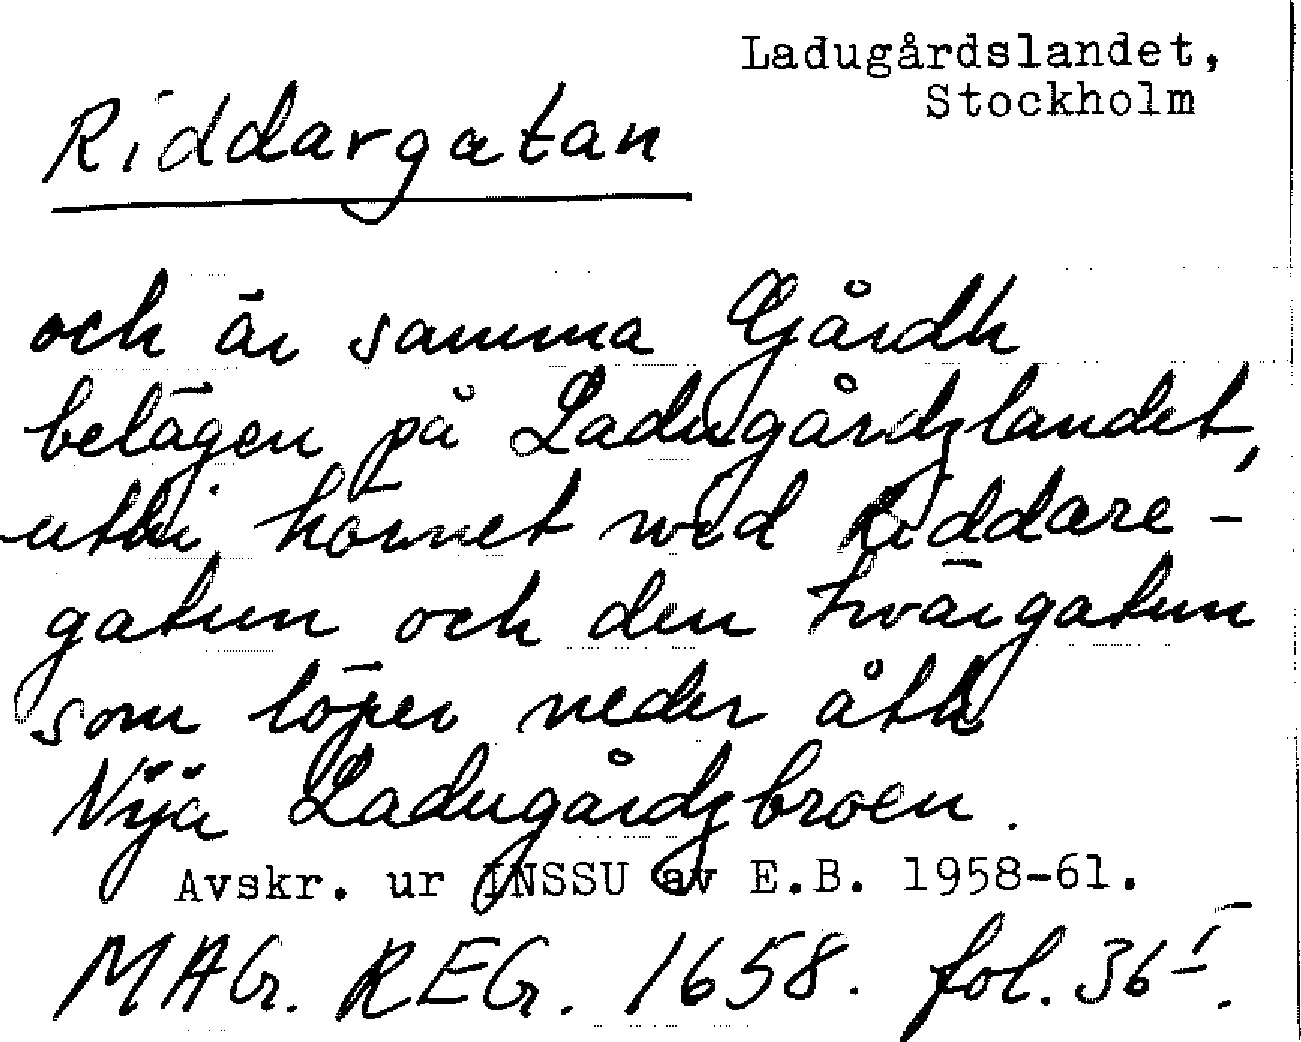 Ladugårdslandet,
Stockholm
Riddargatan
och är samma Gårdh
belägen på Ladugårdzlandet,
uthi hörnet wed Riddare-
gatun och den twärgatun
som löper neder åth
Nÿiä Ladugårdzbroen.
Avskr. ur INSSU av E.B. 1958-61.
MAG. REG. 1658. fol. 36